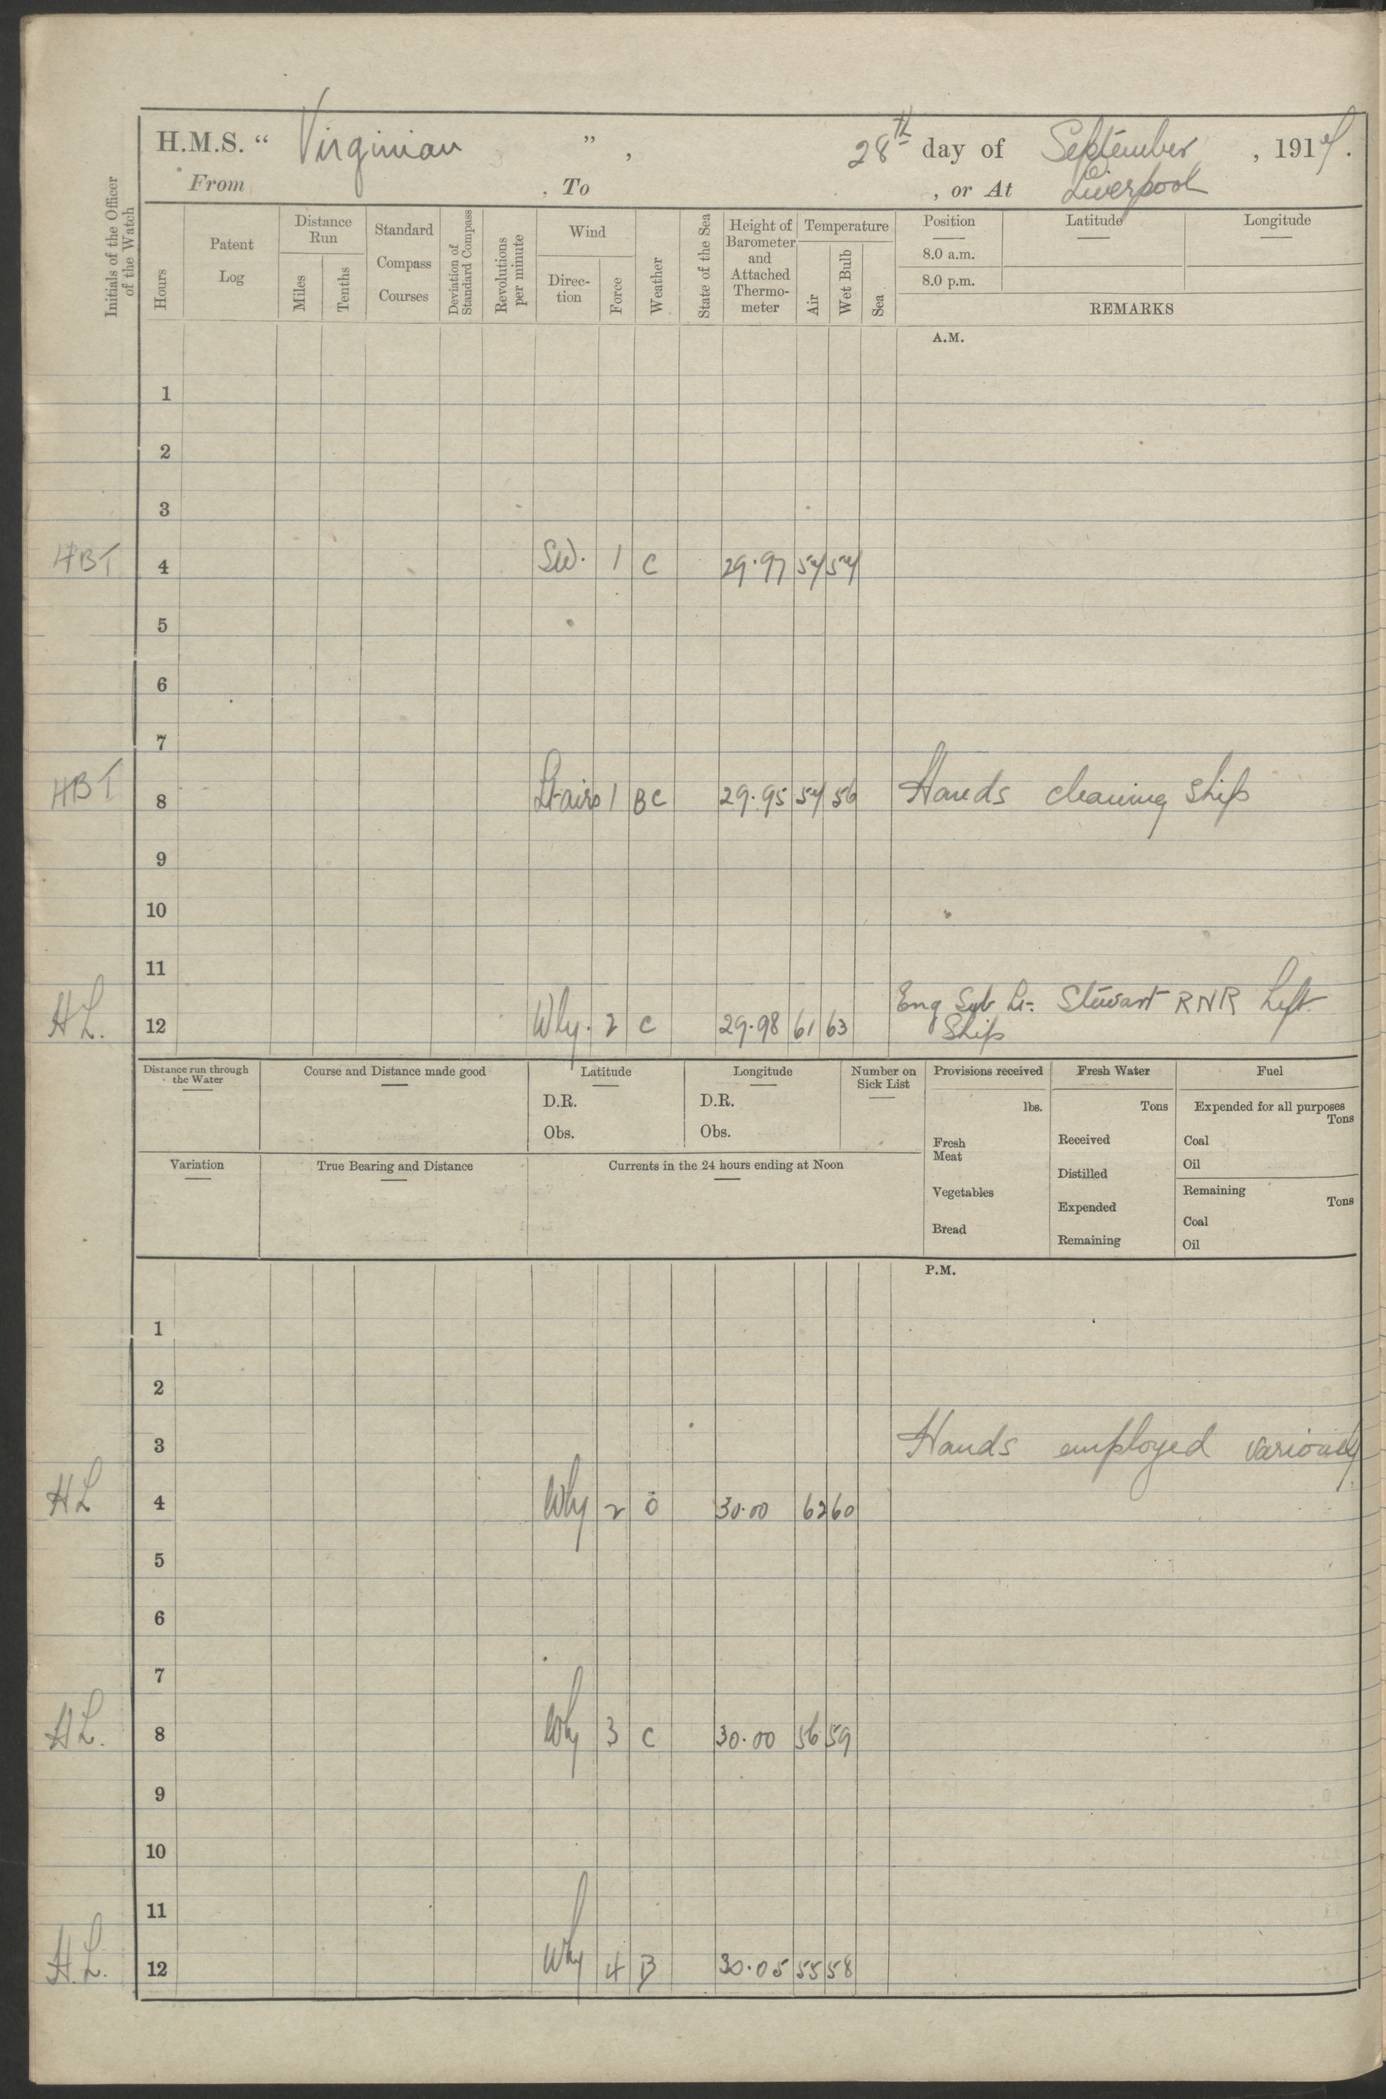 H.M.S. “ Virginian ” , 28th day of September , 1914.
From , To , or At Liverpool
Initials of the Officer of the Watch
Hours
Patent Log
Distance Run
Miles
Tenths
Standard Compass Courses
Deviation of Standard Compass
Revolutions per minute
Wind
Direc-tion
Force
Weather
State of the Sea
Height of Barometer and Attached Thermo-meter
Temperature
Air
Wet Bulb
Sea
Position
Latitude
Longitude
8.0 a.m.
8.0 p.m.
REMARKS
A.M.
1
2
3
HBT 4 SW. 1 C 29.97 54 54
5
6
7
HBT 8 Lt airs 1 BC 29.95 54 56 Hands cleaning ship
9
10
11
Eng Sub Lt. Stewart RNR Left
HL. 12 Wly. 2 C 29.98 61 63 Ship
Distance run through the Water
Course and Distance made good
Latitude
D.R.
Obs.
Longitude
D.R.
Obs.
Number on Sick List
Provisions received
lbs.
Fresh Meat
Vegetables
Bread
Fresh Water
Tons
Received
Distilled
Expended
Remaining
Fuel
Expended for all purposes
Tons
Coal
Oil
Remaining
Tons
Coal
Oil
Variation
True Bearing and Distance
Currents in the 24 hours ending at Noon
P.M.
1
2
3 Hands employed variously
HL 4 Wly 2 O 30.00 62 60
5
6
7
HL. 8 Wly 3 C 30.00 56 59
9
10
11
H.L. 12 Wly 4 B 30.05 55 58